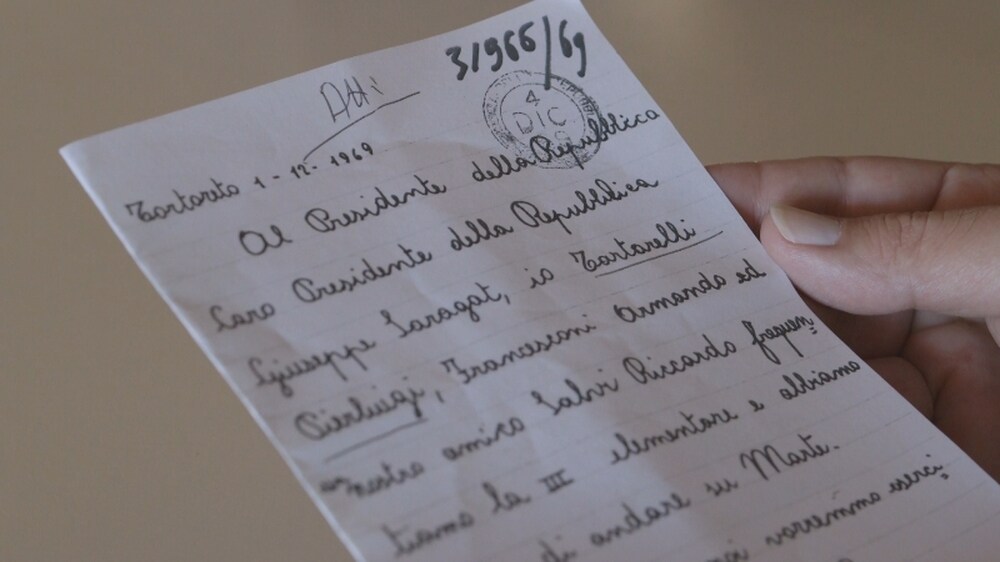 31966/69
Atti
4
DIC
Tortoreto 1-12-1969
Al Presidente della Repubblica
Caro Presidente della Repubblica
Giuseppe Saragat, io Tortorelli
Pierluigi, Francesconi Armando ed
nostro amico Salvi Riccardo frequen=
tiamo la III elementare e abbiamo
di andare su Marte.
vorremmo eserci